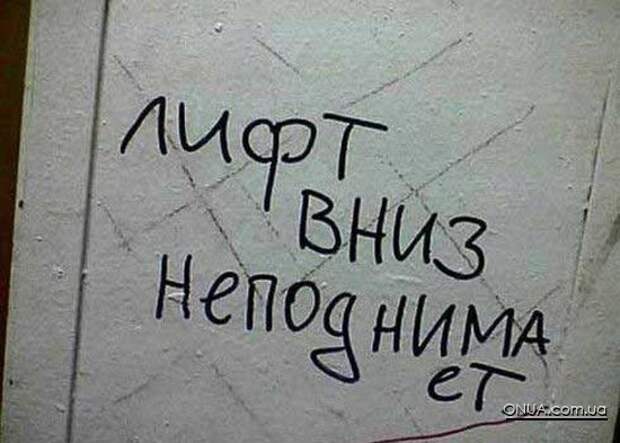 ЛИФТ
ВНИЗ
НеПОДНИМА
еТ
ONUA.com.ua